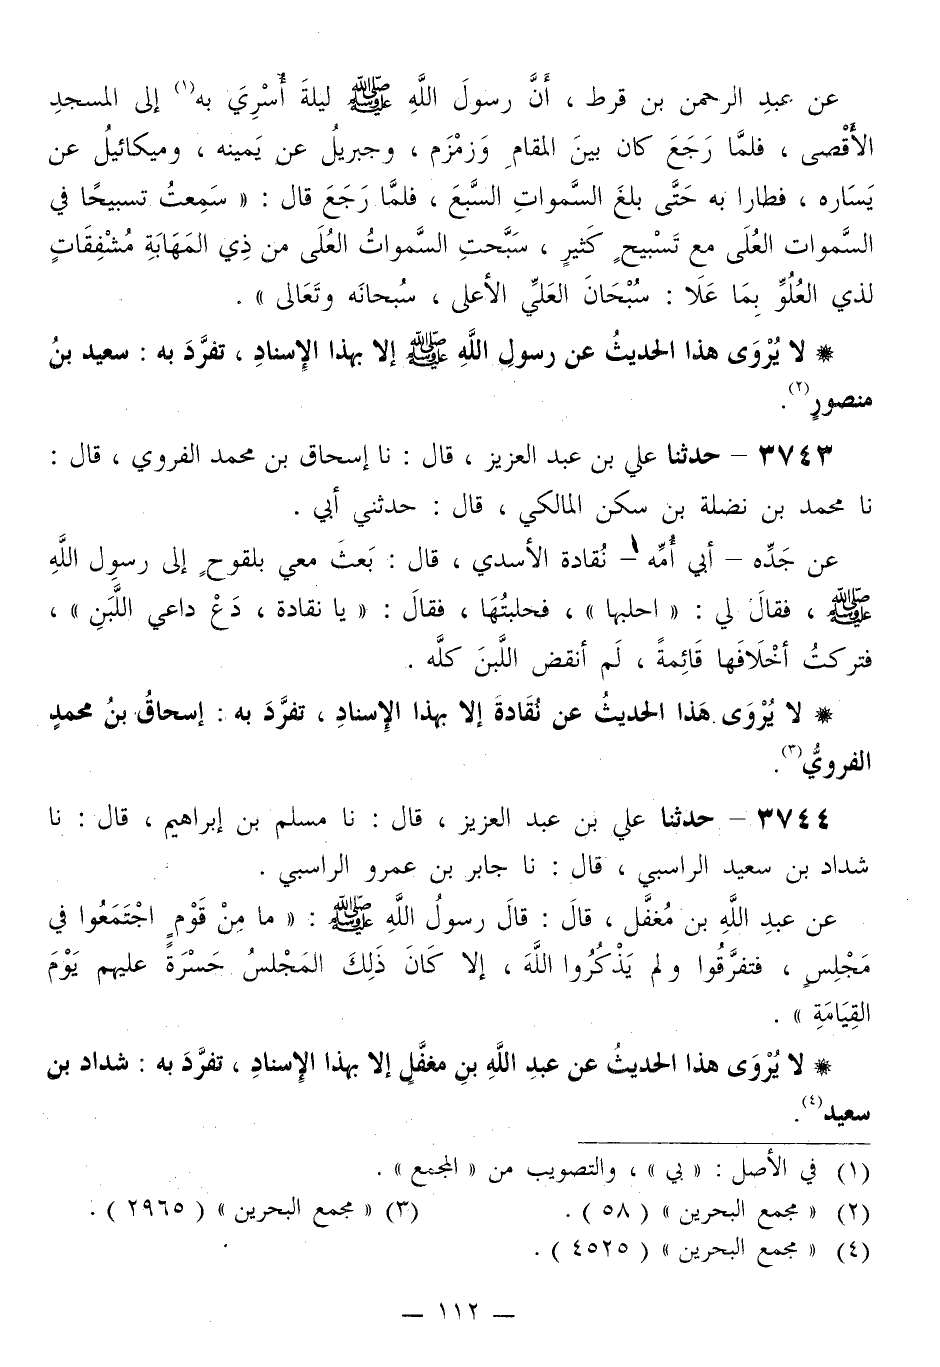 عن عبدِ الرحمن بن قرط ، أَنَّ رسولَ اللَّهِ ﷺ ليلةَ أُسْرِيَ به(١) إلى المسجدِ
الأَقْصى ، فلمَّا رَجَعَ كان بينَ المقامِ وَزمْزَم ، وجبريلُ عن يَمينه ، وميكائيلُ عن
يَسَاره ، فطارا به حَتَّى بلغَ السَّمواتِ السَّبعَ ، فلمَّا رَجَعَ قال : « سَمِعتُ تسبيحًا في
السَّموات العُلَى مع تَسْبيحٍ كَثيرٍ ، سَبَّحتِ السَّمواتُ العُلَى من ذِي المَهَابَةِ مُشْفِقَاتٍ
لذي العُلُوِّ بِمَا عَلَا : سُبْحَانَ العَليِّ الأعلى ، سُبحانَه وتَعَالى » .
* لا يُرْوَى هذا الحديثُ عن رسولِ اللَّهِ ﷺ إلا بهذا الإِسنادِ ، تفرَّدَ به : سعيد بنُ
منصورٍ(٢).
٣٧٤٣ – حدثنا علي بن عبد العزيز ، قال : نا إسحاق بن محمد الفروي ، قال :
نا محمد بن نضلة بن سكن المالكي ، قال : حدثني أبي .
عن جَدِّه – أبي أُمِّه – نُقادة الأسدي ، قال : بَعثَ معي بلقوحٍ إلى رسولِ اللَّهِ
ﷺ ، فقالَ لي : « احلبها » ، فحلبتُهَا ، فقالَ : « يا نقادة ، دَعْ داعي اللَّبَنِ » ،
فتركتُ أخْلَافَها قَائِمةً ، لَم أنقض اللَّبنَ كلَّه .
* لا يُرْوَى هَذا الحديثُ عن نُقَادةَ إلا بهذا الإِسنادِ ، تفرَّدَ به : إسحاقُ بنُ محمدٍ
الفرويُّ(٣).
٣٧٤٤ – حدثنا علي بن عبد العزيز ، قال : نا مسلم بن إبراهيم ، قال : نا
شداد بن سعيد الراسبي ، قال : نا جابر بن عمرو الراسبي .
عن عبدِ اللَّهِ بن مُغفَّل ، قالَ : قالَ رسولُ اللَّهِ ﷺ : « ما مِنْ قَوْمٍ اجْتَمَعُوا في
مَجْلِسٍ ، فتفرَّقُوا ولم يَذْكُرُوا اللَّهَ ، إلا كَانَ ذَلِكَ المَجْلسُ حَسْرَةً عليهم يَوْمَ
القِيَامَةِ » .
* لا يُرْوَى هذا الحديثُ عن عبدِ اللَّهِ بنِ مغفَّلٍ إلا بهذا الإِسنادِ ، تفرَّدَ به : شداد بن
سعيد(٤).
(١) في الأصل : « بي » ، والتصويب من « المجمع » .
(٢) « مجمع البحرين » ( ٥٨ ) . (٣) « مجمع البحرين » ( ٢٩٦٥ ) .
(٤) « مجمع البحرين » ( ٤٥٢٥ ) .
— ١١٢ —